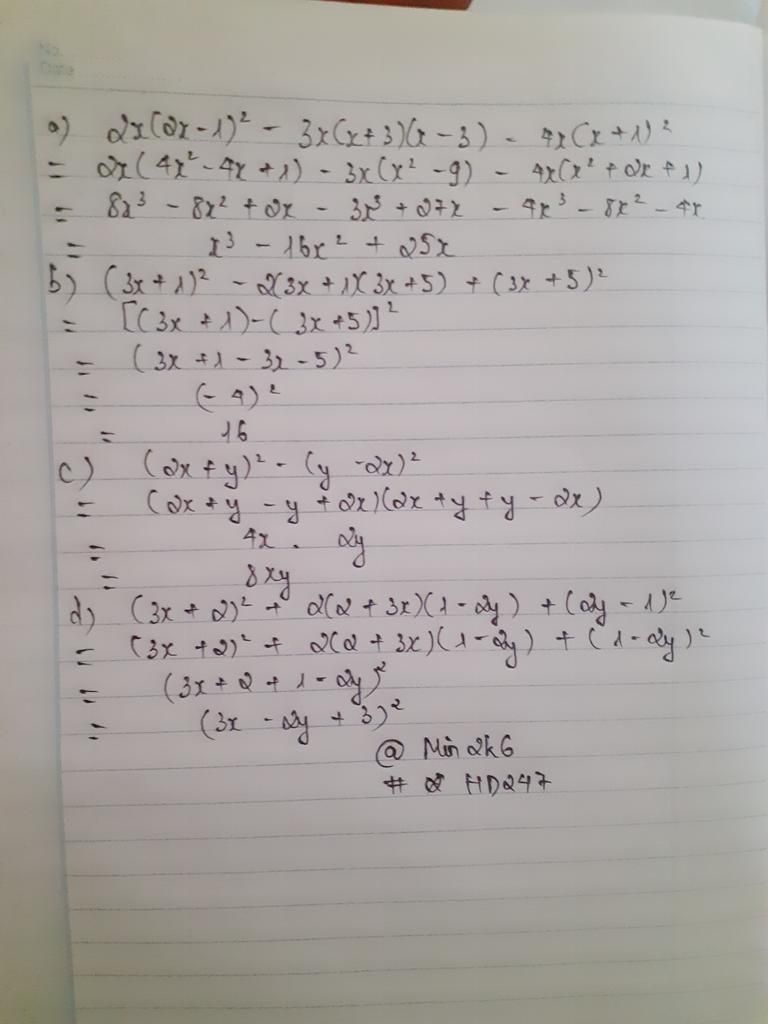 No.
Date
a) 2x(2x-1)² - 3x(x+3)(x-3) - 4x(x+1)²
= 2x(4x²-4x+1) - 3x(x²-9) - 4x(x²+2x+1)
= 8x³ - 8x² + 2x - 3x³ + 27x - 4x³ - 8x² - 4x
= x³ - 16x² + 25x
b) (3x+1)² - 2(3x+1)(3x+5) + (3x+5)²
= [(3x+1)-(3x+5)]²
= (3x+1-3x-5)²
= (-4)²
= 16
c) (2x+y)² - (y-2x)²
= (2x+y-y+2x)(2x+y+y-2x)
= 4x . 2y
= 8xy
d) (3x+2)² + 2(2+3x)(1-2y) + (2y-1)²
= (3x+2)² + 2(2+3x)(1-2y) + (1-2y)²
= (3x+2+1-2y)²
= (3x-2y+3)²
@ Min2k6
# HD247